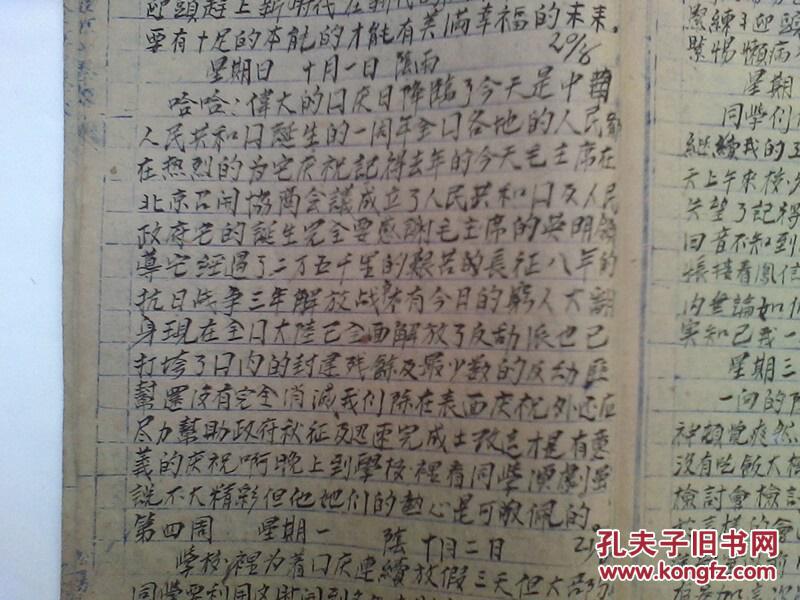 要有十足的本能的才能有美滿幸福的未来。
29/8
星期日 十月一日 陰雨
哈哈：偉大的囗庆日降臨了今天是中華
人民共和囗誕生的一周年全囗各地的人民都
在热烈的为它庆祝記得去年的今天毛主席在
北京召開協商会議成立了人民共和囗及人民
政府它的誕生完全要感謝毛主席的英明領
導它經過了二万五千里的艱苦的長征八年的
抗日战争三年解放战才有今日的窮人大翻
身現在全囗大陸已全面解放了反动派也已
打垮了囗内的封建残餘及最少数的反动匪
幫還没有完全消滅我们除在表面庆祝外还应
尽力幫助政府秋征及迅速完成土改这才是有意
義的庆祝啊晚上到學校裡看同學演劇虽
說不大精彩但他她们的热心是可敬佩的
第四周 星期一 陰 十月二日
學校裡为着囗庆連續放假三天但大
星期
同學们
継續我的
天上午來校
失望了記得
回音不知到
悵接着鳳信
内無論如何
実知己我一
星期三
一向的
神頓覺疲然
没有吃飯大
檢討會檢討
孔夫子旧书网
www.kongfz.com